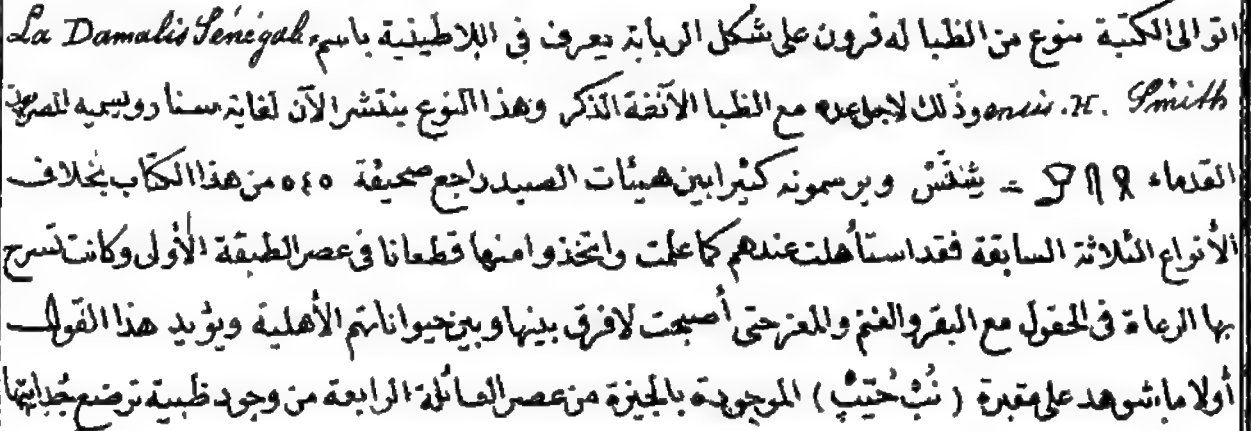 اتوا الى الكتبة بنوع من الظبا له قرون على شكل الربابة يعرف فى اللاطينية باسم La Damalis Sénégal
ensis. H. Smith وذلك لاجل عده مع الظبا الآنفة الذكر وهذا النوع ينتشر الآن لغاية سنار ويسميه المصريون
القدماء = شِسَس ويرسمونه كثيرا بين هيئات الصيد راجع صحيفة ٥٤٥ من هذا الكتاب بخلاف
الأنواع الثلاثة السابقة فقد استأهلت عندهم كما علمت واتخذوا منها قطعانا فى عصر الطبقة الأولى وكانت تسرح
بها الرعاة فى الحقول مع البقر والغنم والمعز حتى أصبحت لا فرق بينها وبين حيواناتهم الأهلية ويؤيد هذا القول
أولا ما شوهد على مقبرة ( نُبْ حُتَپْ ) الموجودة بالجيزة من عصر العائلة الرابعة من وجود ظبية ترضع جدايتها